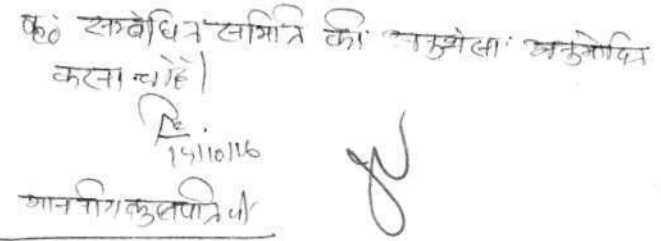 कृ० सम्बंधित समिति की अनुशंसा अनुमोदित
करना चाहें।
19/10/16
माननीय कुलपति जी